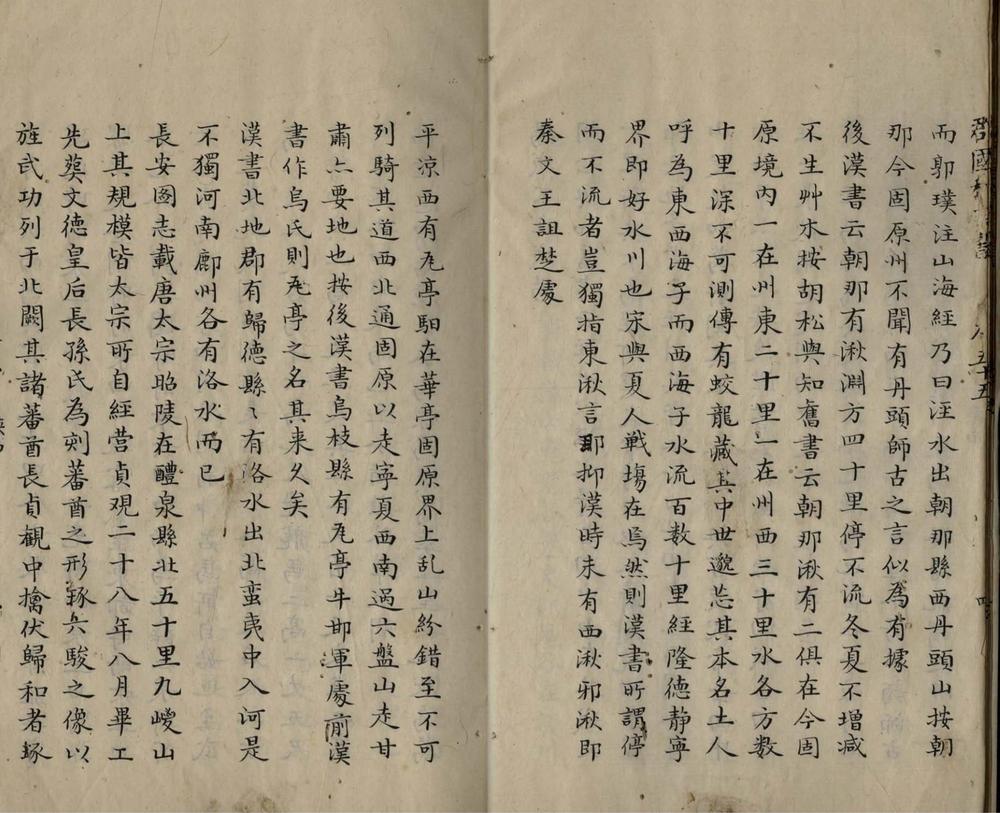 而郭璞注山海經乃曰涇水出朝那縣西丹頭山按朝
那今固原州不聞有丹頭師古之言似為有據
後漢書云朝那有湫淵方四十里停不流冬夏不增減
不生艸木按胡松與知奮書云朝那湫有二俱在今固
原境內一在州東二十里一在州西三十里水各方數
十里深不可測傳有蛟龍藏其中世邈忘其本名土人
呼為東西海子而西海子水流百數十里經隆德靜寧
界即好水川也宋與夏人戰塲在焉然則漢書所謂停
而不流者豈獨指東湫言耶抑漢時未有西湫邪湫即
秦文王詛楚處
平凉西有瓦亭馹在華亭固原界上乱山紛錯至不可
列騎其道西北通固原以走寧夏西南過六盤山走甘
肅亦要地也按後漢書烏枝縣有瓦亭牛邯軍處前漢
書作烏氏則瓦亭之名其来久矣
漢書北地郡有歸德縣〻有洛水出北蛮夷中入河是
不獨河南鄜州各有洛水而已
長安圖志載唐太宗昭陵在醴泉縣北五十里九嵕山
上其規模皆太宗所自經营貞观二十八年八月畢工
先葬文德皇后長孫氏為刻蕃酋之形琢六駿之像以
旌武功列于北闕其諸蕃酋長貞觀中擒伏歸和者琢